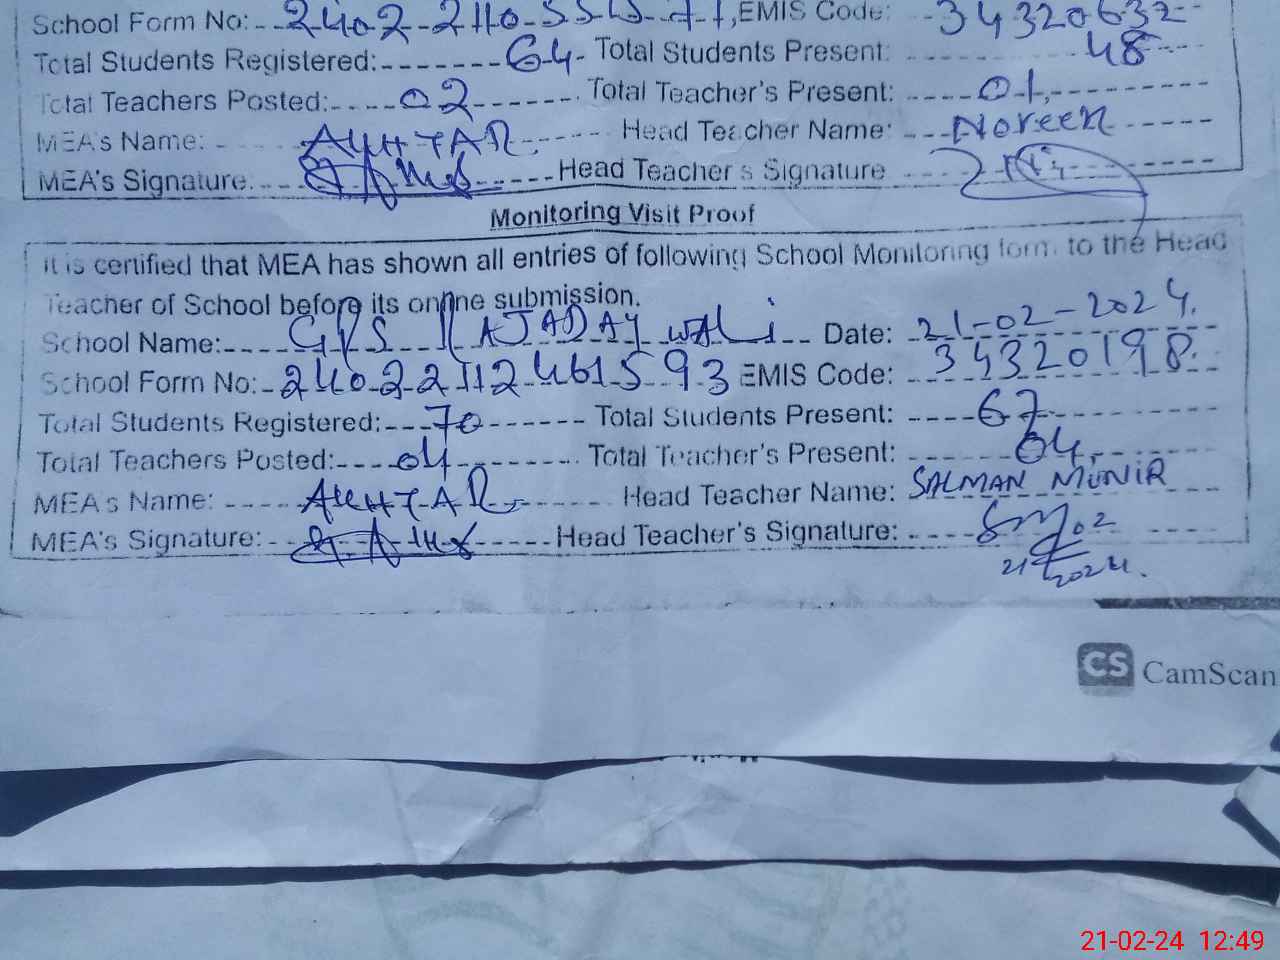 School Form No: EMIS Code: 34320632
Total Students Registered: 64 Total Students Present: 48
Total Teachers Posted: 02 Total Teacher's Present: 01
MEA's Name: AKHTAR Head Teacher Name: Noreen
MEA's Signature: Head Teacher's Signature
Monitoring Visit Proof
It is certified that MEA has shown all entries of following School Monitoring form. to the Head
Teacher of School before its online submission.
School Name: GPS RAJADAY WALI Date: 21-02-2024.
School Form No: 24022112461593 EMIS Code: 34320198.
Total Students Registered: 70 Total Students Present: 67
Total Teachers Posted: 04 Total Teacher's Present: 04
MEA's Name: AKHTAR Head Teacher Name: SALMAN MUNIR
MEA's Signature: Head Teacher's Signature:
21 02 2024.
CS CamScan
21-02-24 12:49